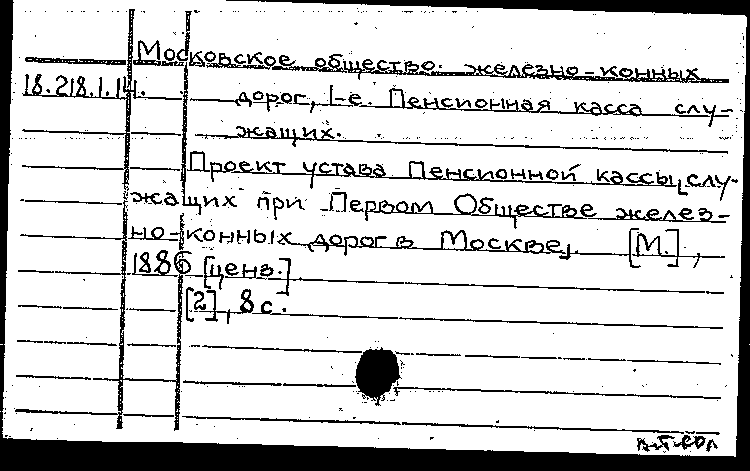 Московское общество железно-конных
18.218.1.14. дорог, 1-е. Пенсионная касса слу-
жащих.
Проект устава Пенсионной кассы слу-
жащих при Первом Обществе желез-
но-конных дорог в Москве. [М.],
1886 [ценз.].
[2], 8 с.